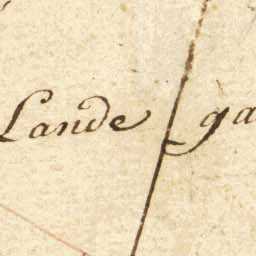 Lande ga